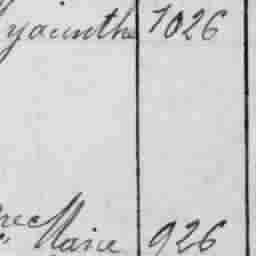 yacinthe 1026
Marie 926